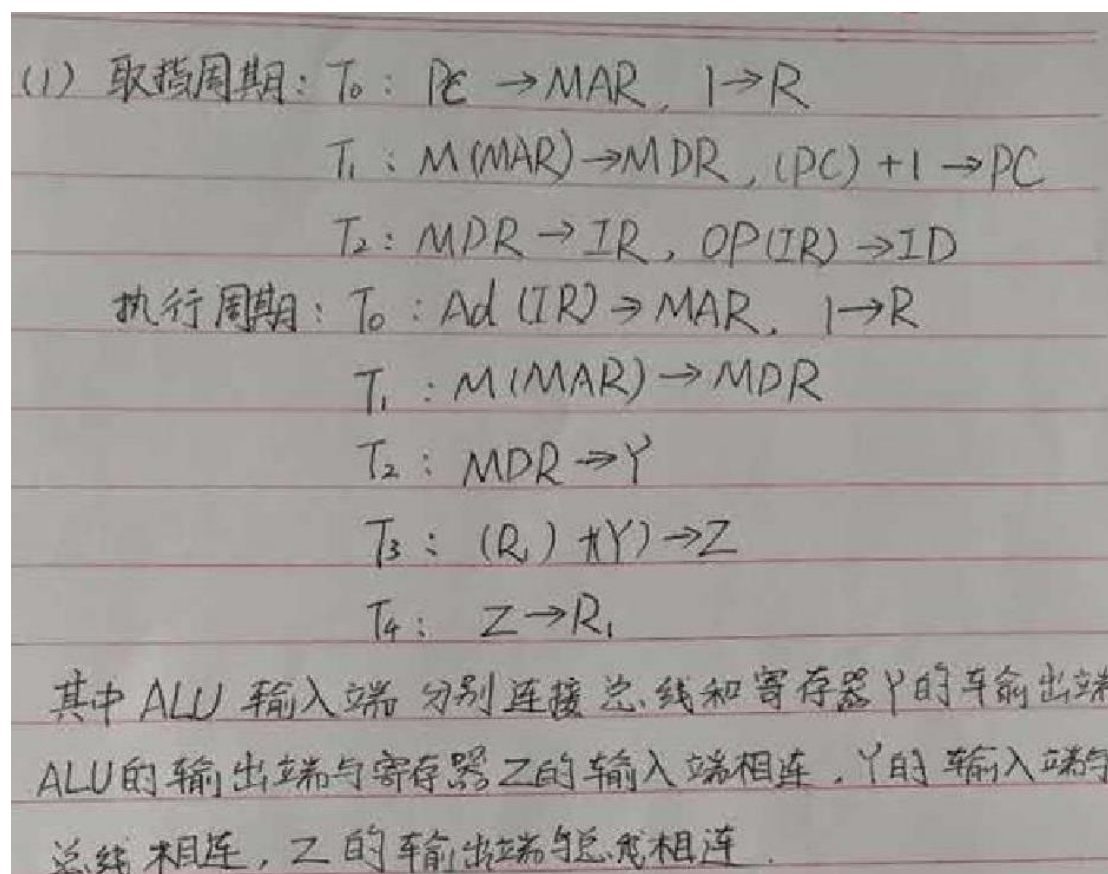 (1) 取指周期: T₀: PC → MAR, 1→R
T₁: M(MAR)→MDR, (PC)+1→PC
T₂: MDR → IR, OP(IR)→ID
执行周期: T₀: Ad(IR)→MAR, 1→R
T₁: M(MAR)→MDR
T₂: MDR→Y
T₃: (R₁)+(Y)→Z
T₄: Z→R₁
其中 ALU 输入端 分别连接总线和寄存器Y的输出端
ALU的输出端与寄存器Z的输入端相连,Y的输入端与
总线相连,Z的输出端与总线相连.